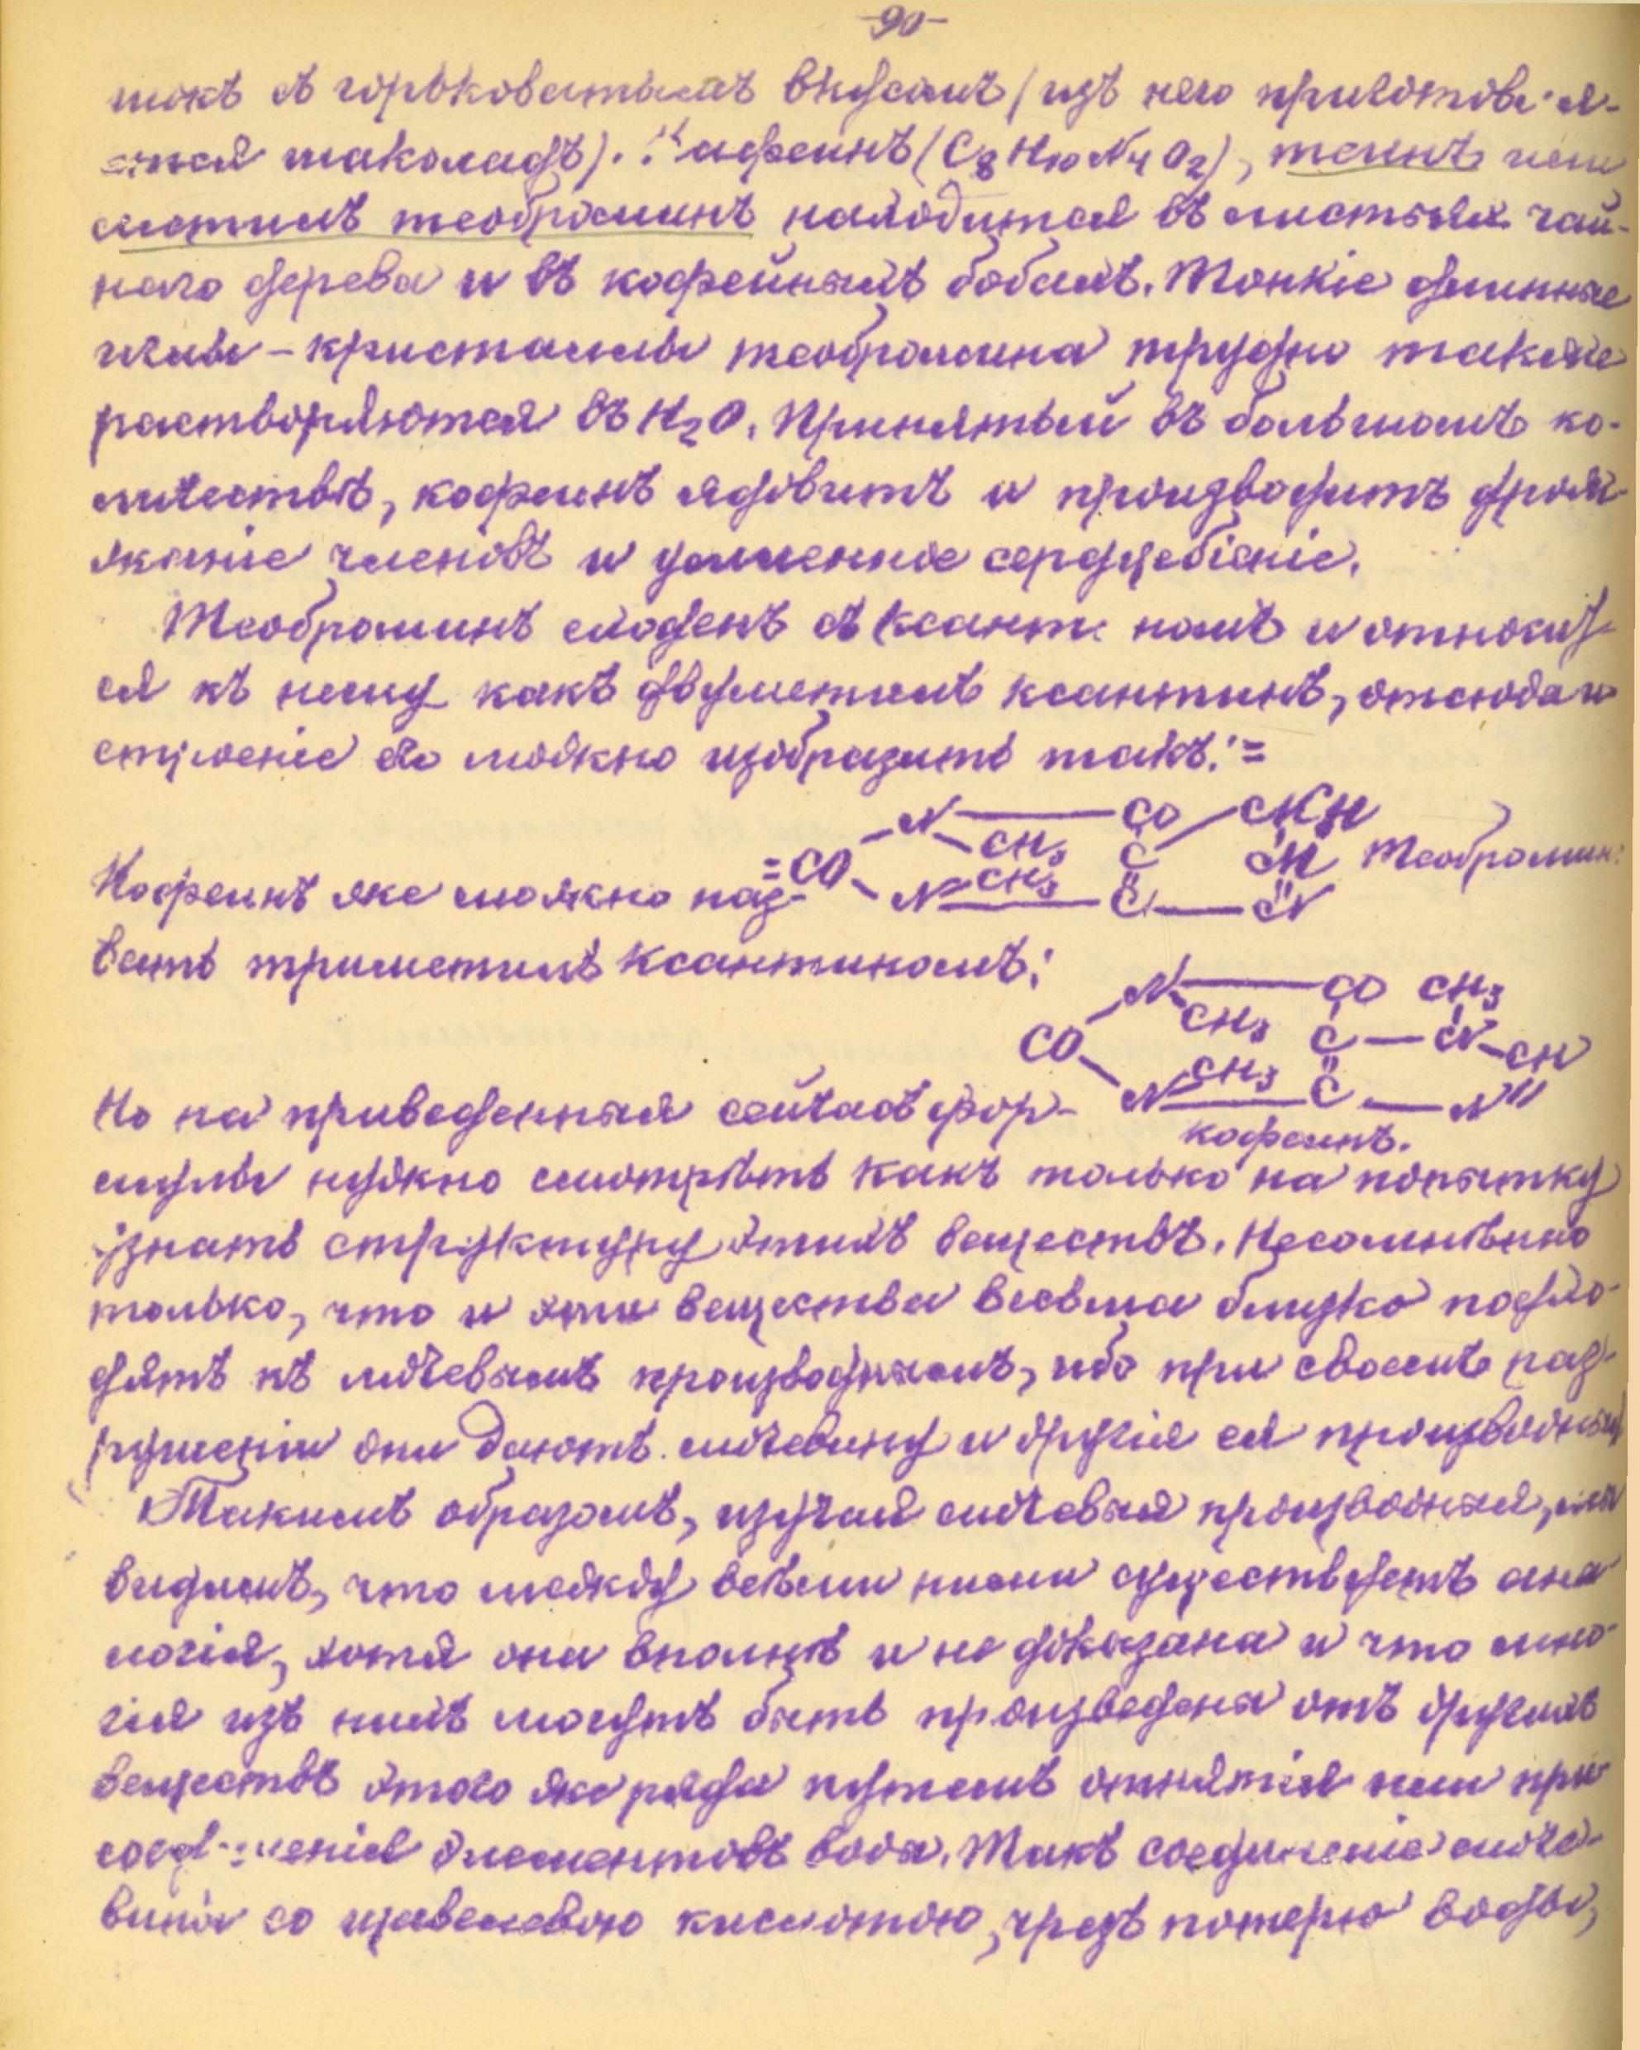 -90-
шокъ съ горьковатымъ вкусомъ (изъ него приготовля-
ется шаколадъ). Кафеинъ (C8H10N4O2), теинъ или
метилъ теоброминъ находится въ листьяхъ чай-
наго дерева и въ кофейныхъ бобахъ. Тонкіе длинные
иглы - кристаллы теобромина трудно также
растворяются въ H2O. Принятый въ большомъ ко-
личествѣ, кофеинъ ядовитъ и производитъ дрож-
жаніе членовъ и усиленное сердцебіеніе.
Теоброминъ сходенъ съ ксантиномъ и относит-
ся къ нему какъ двуметилъ ксантинъ, отсюда и
строеніе его можно изобразить такъ: =
N — CO / CH H
CH3 C CH Теоброминъ
=CO
Кофеинъ же можно наз-
N CH3 — C — N
вать триметилъ ксантиномъ:
N — CO CH3
CH3 C — N - CH
CO
N CH3 — C — N
Но на приведенныя сейчасъ фор-
кофеинъ.
мулы нужно смотрѣть какъ только на попытку
узнать структуру этихъ веществъ. Несомнѣнно
только, что и эти вещества весьма близко подхо-
дятъ къ мочевымъ производнымъ, ибо при своемъ раз-
рушеніи они даютъ мочевину и другія ея производныя
Такимъ образомъ, изучая мочевыя производныя, мы
видимъ, что между всѣми ними существуетъ ана-
логія, хотя она вполнѣ и не доказана и что мно-
гія изъ нихъ могутъ быть произведены отъ другихъ
веществъ этого же ряда путемъ отнятія или при-
соединенія элементовъ воды. Такъ соединеніе моче-
вины со щавелевою кислотою, чрезъ потерю воды,